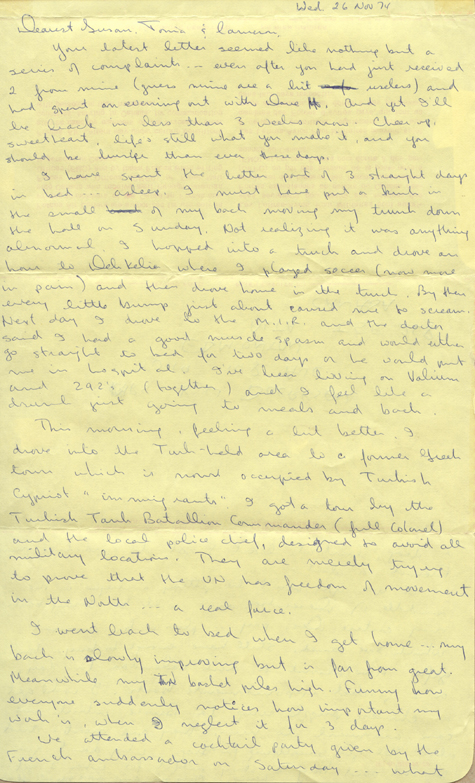 Wed 26 Nov 74
Dearest Susan, Tonia & Lauren,
Your latest letter seemed like nothing but a
series of complaints... even after you had just received
2 from mine (guess mine are a bit useless) and
had spent an evening out with Dave H. And yet I'll
be back in less than 3 weeks now. Cheer up,
sweetheart, life's still what you make it, and you
should be busier than ever these days.
I have spent the better part of 3 straight days
in bed... asleep. I must have put a kink in
the small of my back moving my trunk down
the hall on Sunday. Not realizing it was anything
abnormal I hopped into a truck and drove an
hour to Dhekelia where I played soccer (now more
in pain) and then drove home in the truck. By then
every little bump just about caused me to scream.
Next day I drove to the M.I.R. and the doctor
said I had a good muscle spasm and would either
go straight to bed for two days or he would put
me in hospital. I've been living on Valium
and 292's (together) and I feel like a
drunk just going to meals and back.
This morning, feeling a bit better, I
drove into the Turk-held area to a former Greek
town which is now occupied by Turkish
Cypriot "immigrants" I got a tour by the
Turkish Tank Batallion Commander (full Colonel)
and the local police chief, designed to avoid all
military locations. They are merely trying
to prove that the UN has freedom of movement
in the North... a real farce.
I went back to bed when I got home... my
back is slowly improving but is far from great.
Meanwhile my IN basket piles high. Funny how
everyone suddenly notices how important my
work is, when I neglect it for 3 days.
I've attended a cocktail party given by the
French ambassador on Saturday... what